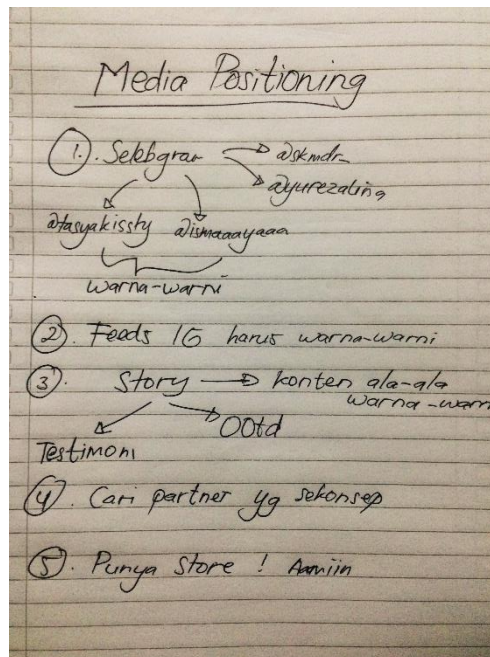 Media Positioning
1. Selebgram → @skmdr_
@yurezalina
@tasyakissty @ismaaayaaa
warna-warni
2. Feeds IG harus warna-warni
3. Story → konten ala-ala
warna-warni
OOtd
Testimoni
4. Cari partner yg sekonsep
5. Punya Store ! Aamiin